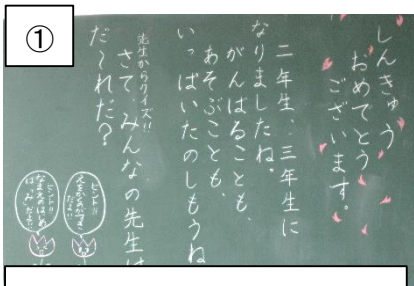 ①
しんきゅう
おめでとう
ございます。
二年生、三年生に
なりましたね。
がんばることも、
あそぶことも、
いっぱいたのしもうね
先生からクイズ!!
さて、みんなの先生は
だ〜れだ?
ヒント!!
だよ!!
ヒント!!